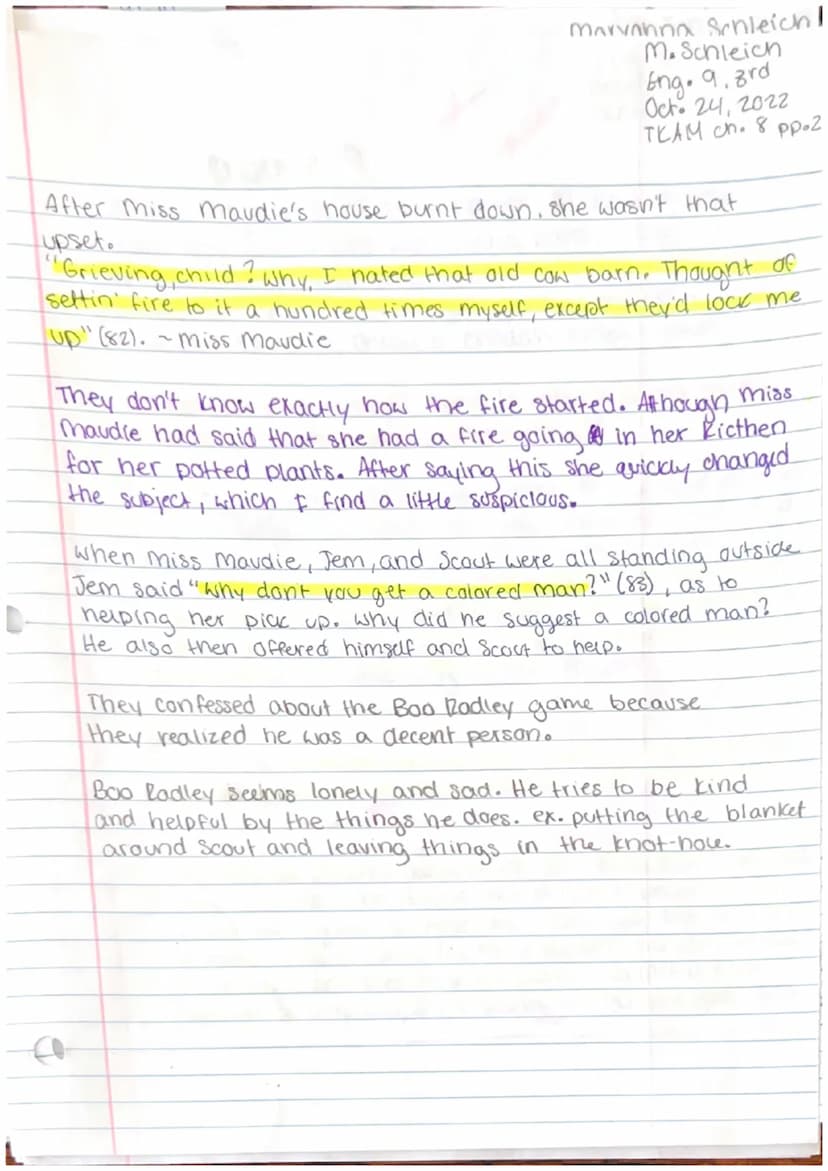 Maryanna Schleich
M. Schleich
Eng. 9, 3rd
Oct. 24, 2022
TKAM ch. 8 pp.2
After Miss Maudie's house burnt down, she wasn't that
upset.
"Grieving, child? Why, I hated that old cow barn. Thought of
settin' fire to it a hundred times myself, except they'd lock me
up" (82). ~ Miss Maudie
They don't know exactly how the fire started. Although Miss
Maudie had said that she had a fire going in her kicthen
for her potted plants. After saying this she quickly changed
the subject, which I find a little suspicious.
When Miss Maudie, Jem, and Scout were all standing outside
Jem said "Why don't you get a colored man?" (83), as to
helping her pick up. Why did he suggest a colored man?
He also then offered himself and Scout to help.
They confessed about the Boo Radley game because
they realized he was a decent person.
Boo Radley seems lonely and sad. He tries to be kind
and helpful by the things he does. ex. putting the blanket
around Scout and leaving things in the knot-hole.